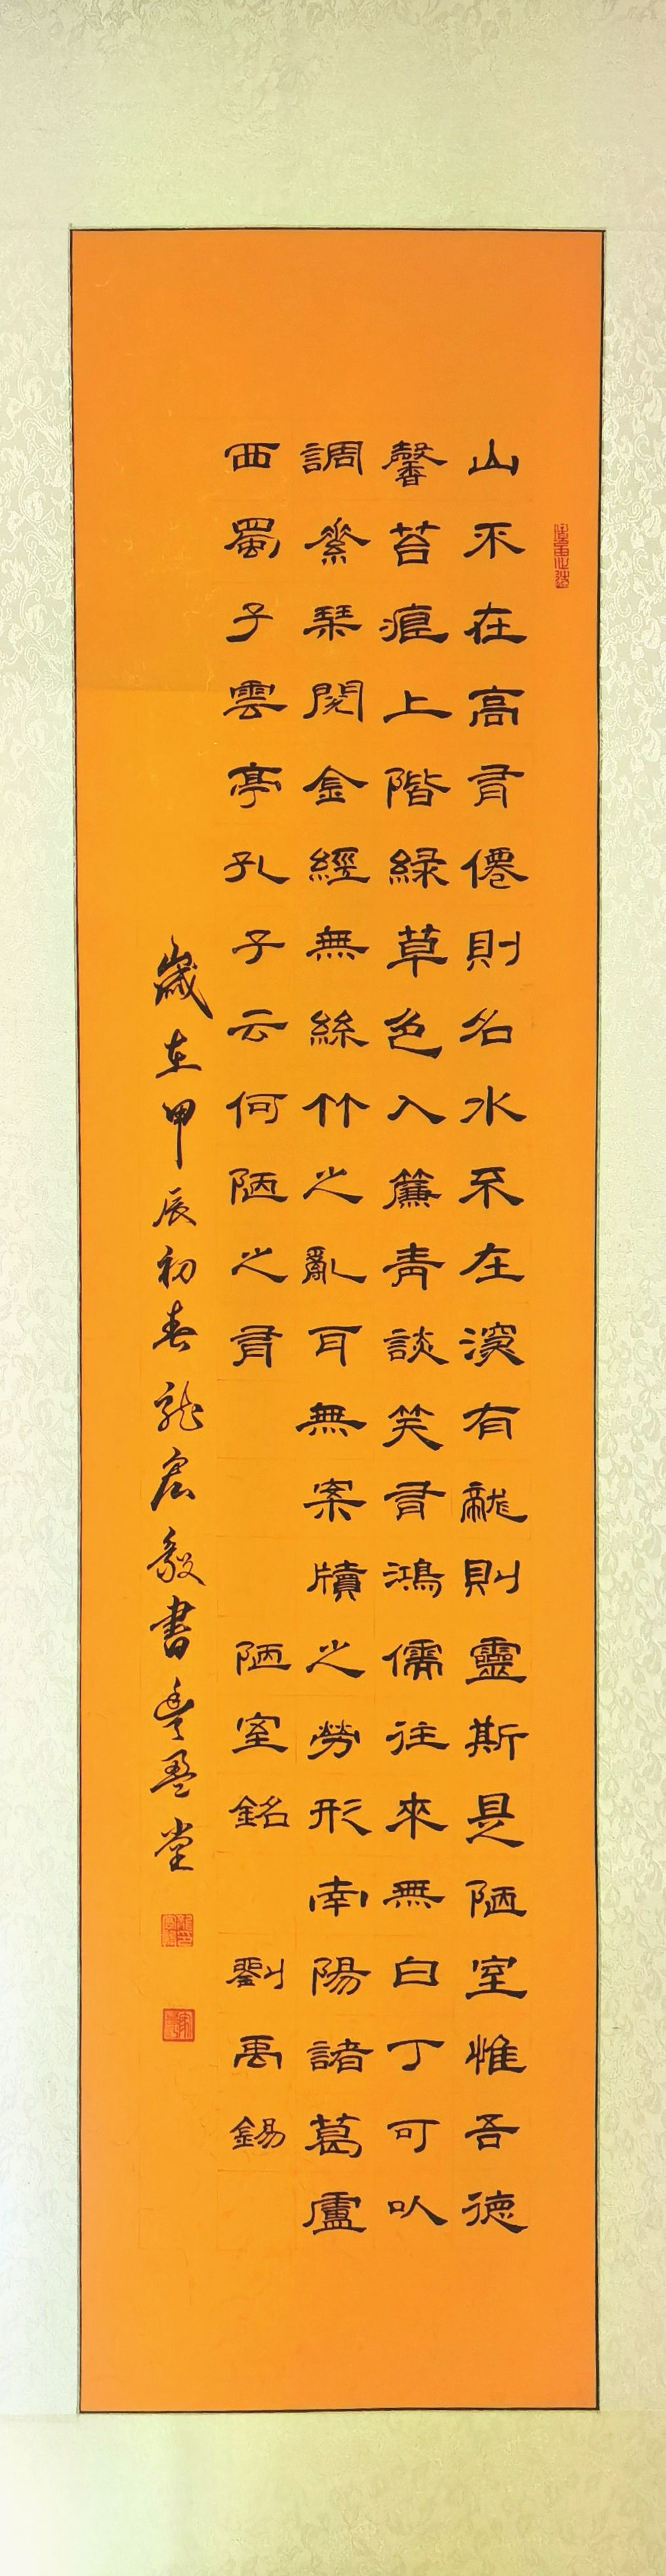 山不在高有僊則名水不在深有龍則靈斯是陋室惟吾德
馨苔痕上階緑草色入簾青談笑有鴻儒往來無白丁可以
調素琴閲金經無絲竹之亂耳無案牘之勞形南陽諸葛盧
西蜀子雲亭孔子云何陋之有 陋室銘 劉禹錫
歲在甲辰初春龍宏毅書豐盈堂